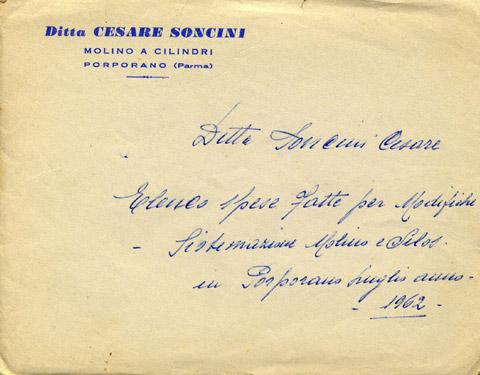 Ditta CESARE SONCINI
MOLINO A CILINDRI
PORPORANO (Parma)
Ditta Soncini Cesare
Elenco spese fatte per Modifiche
- Sistemazione Molino e Silos -
in Porporano luglio anno -
- 1962 -